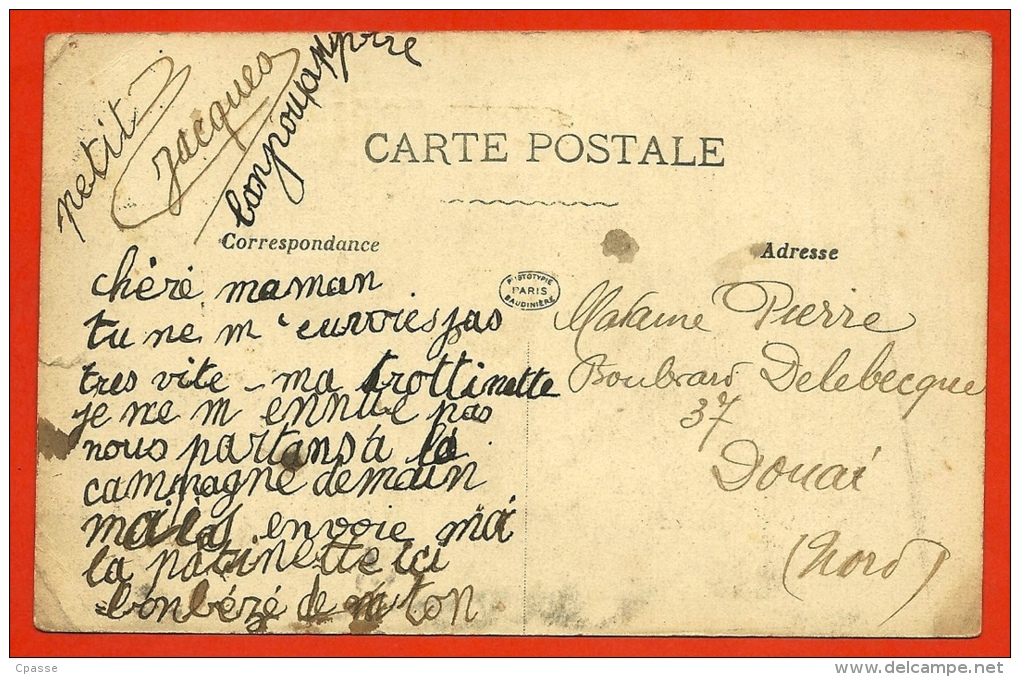 petit
Jacques
CARTE POSTALE
Correspondance
Adresse
chère maman
tu ne m'envoies pas
tres vite ma trottinette
je ne m ennuie pas
nous partans à la
campagne demain
mais envoie ma
la patinette ici
bonbézé de
PHOTOTYPIE
PARIS
BAUDINIÈRE
Madame Pierre
Boulevard Delebecque
37
Douai
(Nord)
Cpasse
www.delcampe.net